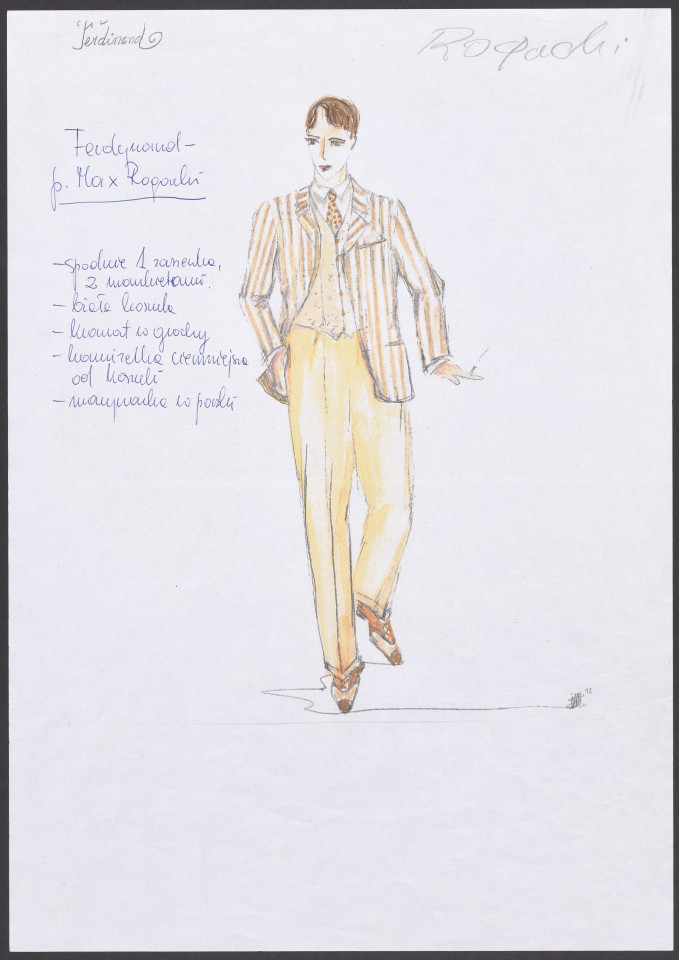 Ferdinand
Rogacki
Ferdynand –
p. Max Rogacki
– spodnie 1 zaszewka,
z mankietami.
– biała koszula
– krawat w grochy
– kamizelka ciemniejsza
od koszuli
– marynarka w paski
12